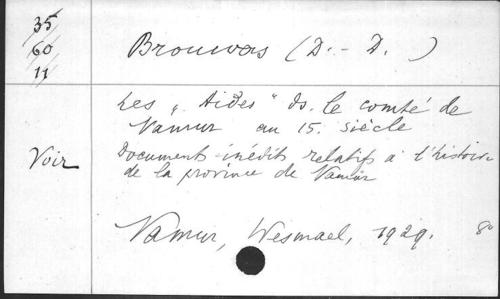 35
60
11
Brouwers (D.-D. )
Les „Aides" ds. le comté de
Namur au 15. siècle
Voir
Documents inédits relatifs à l'histoire
de la province de Namur
Namur, Wesmael, 1929. 8°